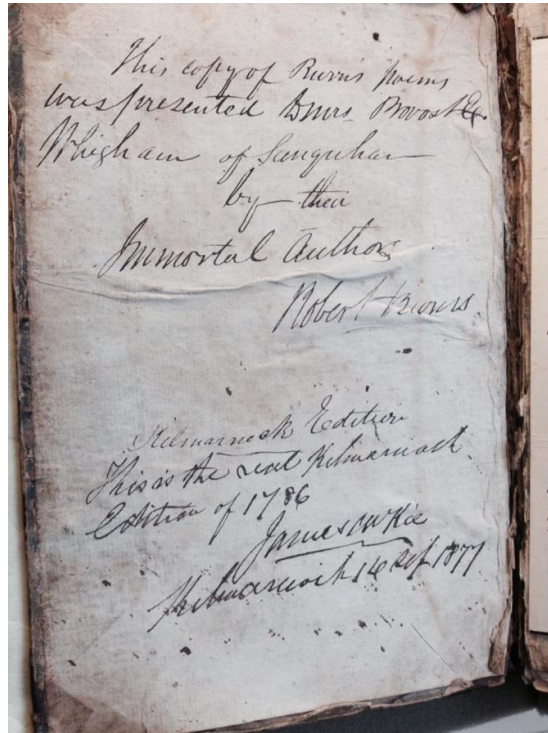 This copy of Burns poems
was presented to Mrs. Provost
Whigham of Sanquhar
by their
Immortal Author
Robert Burns.
Kilmarnock Edition
This is the real Kilmarnock
Edition of 1786
James McKie
Kilmarnock 14 Sep 1877